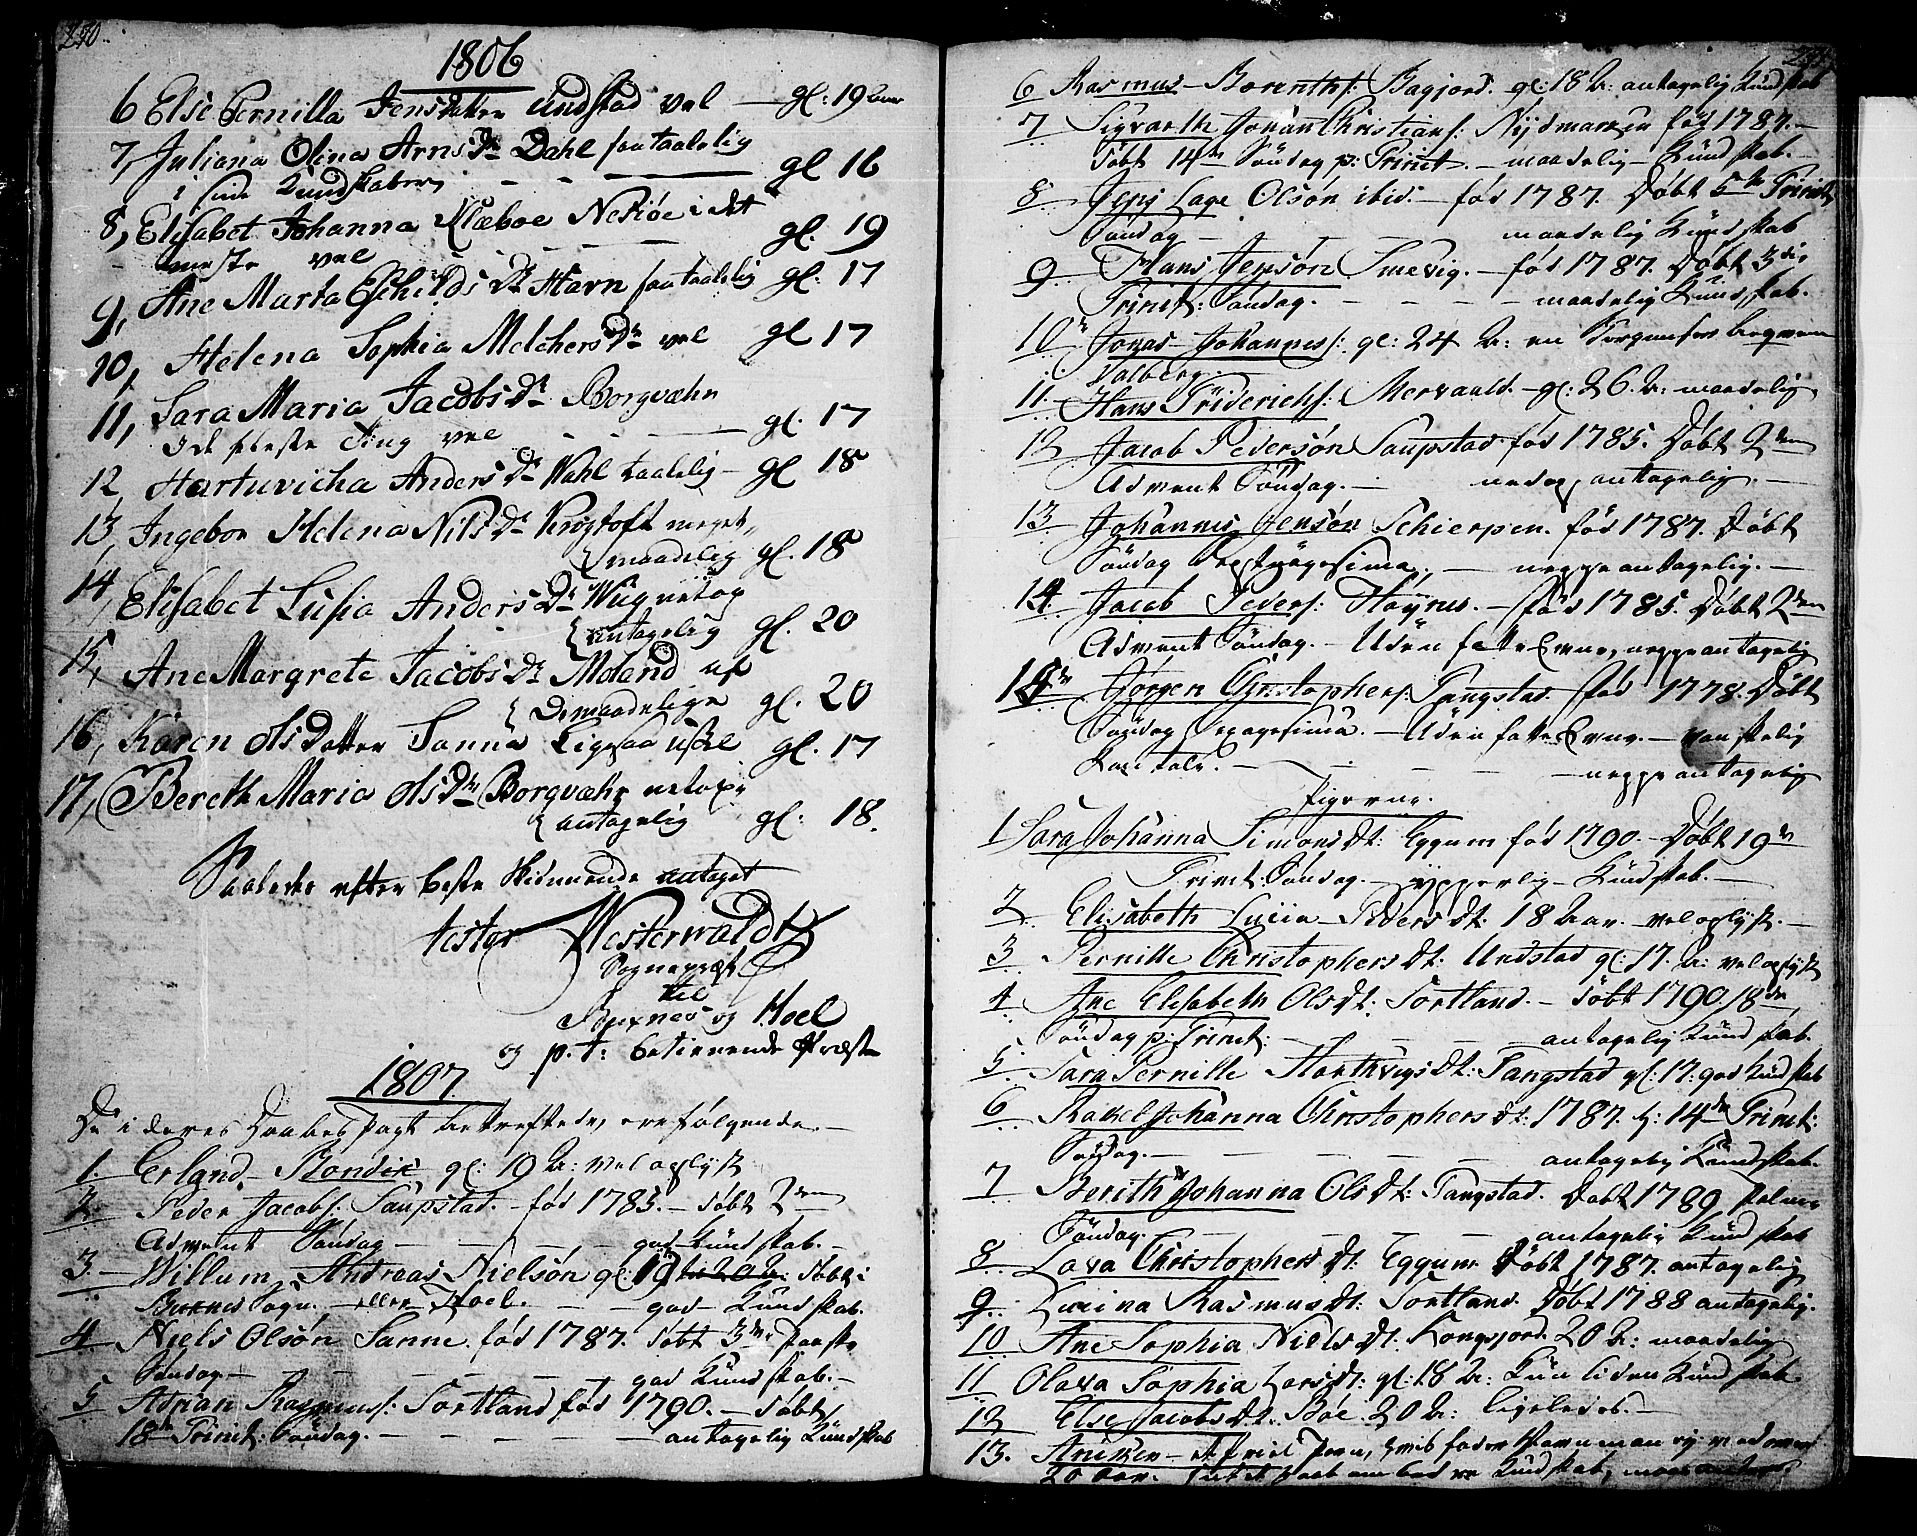 270
1806
6 Else Pernilla Jensdatter Undstad vel — gl: 19 Aar
7, Juliana Olina Arnsdr Dahl faataalelig
i sin Kundskaber gl 16
8, Elisabet Johanna Klæboe Nesiøe i det
meste vel gl: 19
9, Ane Marta Eschildsdr Havn faataalelig gl: 17
10, Helena Sophia Melchersdr vel gl 17
11, Sara Maria Jacobsdr Borgvæhr
I de fleste Ting vel gl. 17
12, Hartuvicha Andersdr Wahl taalelig — gl 18
13, Ingebor Helena Nilsdr Krystoft meget
maadelig gl. 18
14, Elisabet Lusia Andersdr
antagelig gl. 20
15, Ane Margrete Jacobsdr Moland af
de maadelige gl. 20
16, Karen Olsdatter Sanna Ligesaa ussel gl. 17
17, Bereth Maria Olsdr Borgvæhr netop
antagelig gl: 18.
Saaledes efter beste Skiønnende antaget
testor Westerwaldt
Sognepræst
til
Buxnes og Hoel
og p.t: betienende Præst
1807.
De i deres Daabes Pagt bekræftede, ere følgende. —
1. Erland — Bondix gl: 19 A: vel oplyst
2. Peder Jacobs: Saupstad. — fød 1785. — døbt 2den
Advent Søndag — — — god Kundskab. —
3. — Willum Andreas Nielsøn gl: 19 døbt i
Buxnes Sogn. — eller Hoel. — god — Kundskab.
4 Niels Olsøn Sanne. fød 1787. døbt 3die Paaske
Søndag — — — god Kundskab. —
5 Adrian Rasmus: Tortland fød 1790. — døbt
18de Trinit: Søndag. — — — antagelig Kundskab
271
6 Rasmus — Borenths: Bagjord. gl: 18 A: antagelig Kundskab
7 Sigvarth Johan Christians: Nÿdmarken fød 1787. —
døbt 14de Søndag p: Trinit. — maadelig — Kundskab. —
8 Jens Lage Olsøn ibid. — fød 1787. Døbt 5te Trinit
Søndag — — maadelig Kundskab
9 Hans Jensøn Smevig. — fød 1787. Døbt 3die
Trinit: Søndag. — — — maadelig Kundskab.
10 Jonas — Johannes: gl: 24 A: en
Valberg.
11. Hans Friderichs: Mervaald. — gl: 26. A: maadelig
12 Jacob Pedersøn Saupstad fød 1785. Døbt 2den
Advent Søndag. — antagelig. —
13 Johannes Jensøn Schierpen. fød 1787. Døbt
Søndag — neppe antagelig. —
14 Jacob Peders: — fød 1785. Døbt 2den
Advent Søndag. — Uden fatte Evne, neppe antagelig
15 Jørgen Christophers: Tangstad fød 1778. Døbt
Søndag Sexagesima. — Uden fatte Evne. — vanskelig
— — — neppe antagelig
Pigerne.
1 Sara Johanna Simonsdt: Eggum fød 1790. — Døbt 19de
Trinit: Søndag. — ypperlig — Kundskab. —
2 Elisabeth Lucia Pedersdt: 18 Aar. vel oplyst. —
3 Pernille Christophersdt: Undstad gl: 17. A: vel oplyst
4 Ane Elisabeth Olsdt: Tortland. — døbt 1790 18de
Søndag p: Trinit: — — antagelig Kundskab.
5 Sara Pernille Harthvigsdt: Tangstad gl: 17: god Kundskab
6 Rakel Johanna Christophersdt: 1787. d: 14de Trinit:
Søndag. — — — antagelig Kundskab.
7 Berith Johanna Olsdt: Tangstad. Døbt 1789 Palme
Søndag. — — — antagelig Kundskab
8 Lava Christophersdt: Eggum Døbt 1787. antagelig
9 Rasmusdt: Tortland. Døbt 1788 antagelig.
10 Ane Sophia Nielsdt: Kongsjord. 20 A: maadelig
11 Olava Sophia Larsdt: gl: 18 A: Kun liden Kundskab.
12 Else Jacobsdt. Bøe 20 A: ligeledes. —
13. Aniken —
20 Aar. Kundskab,